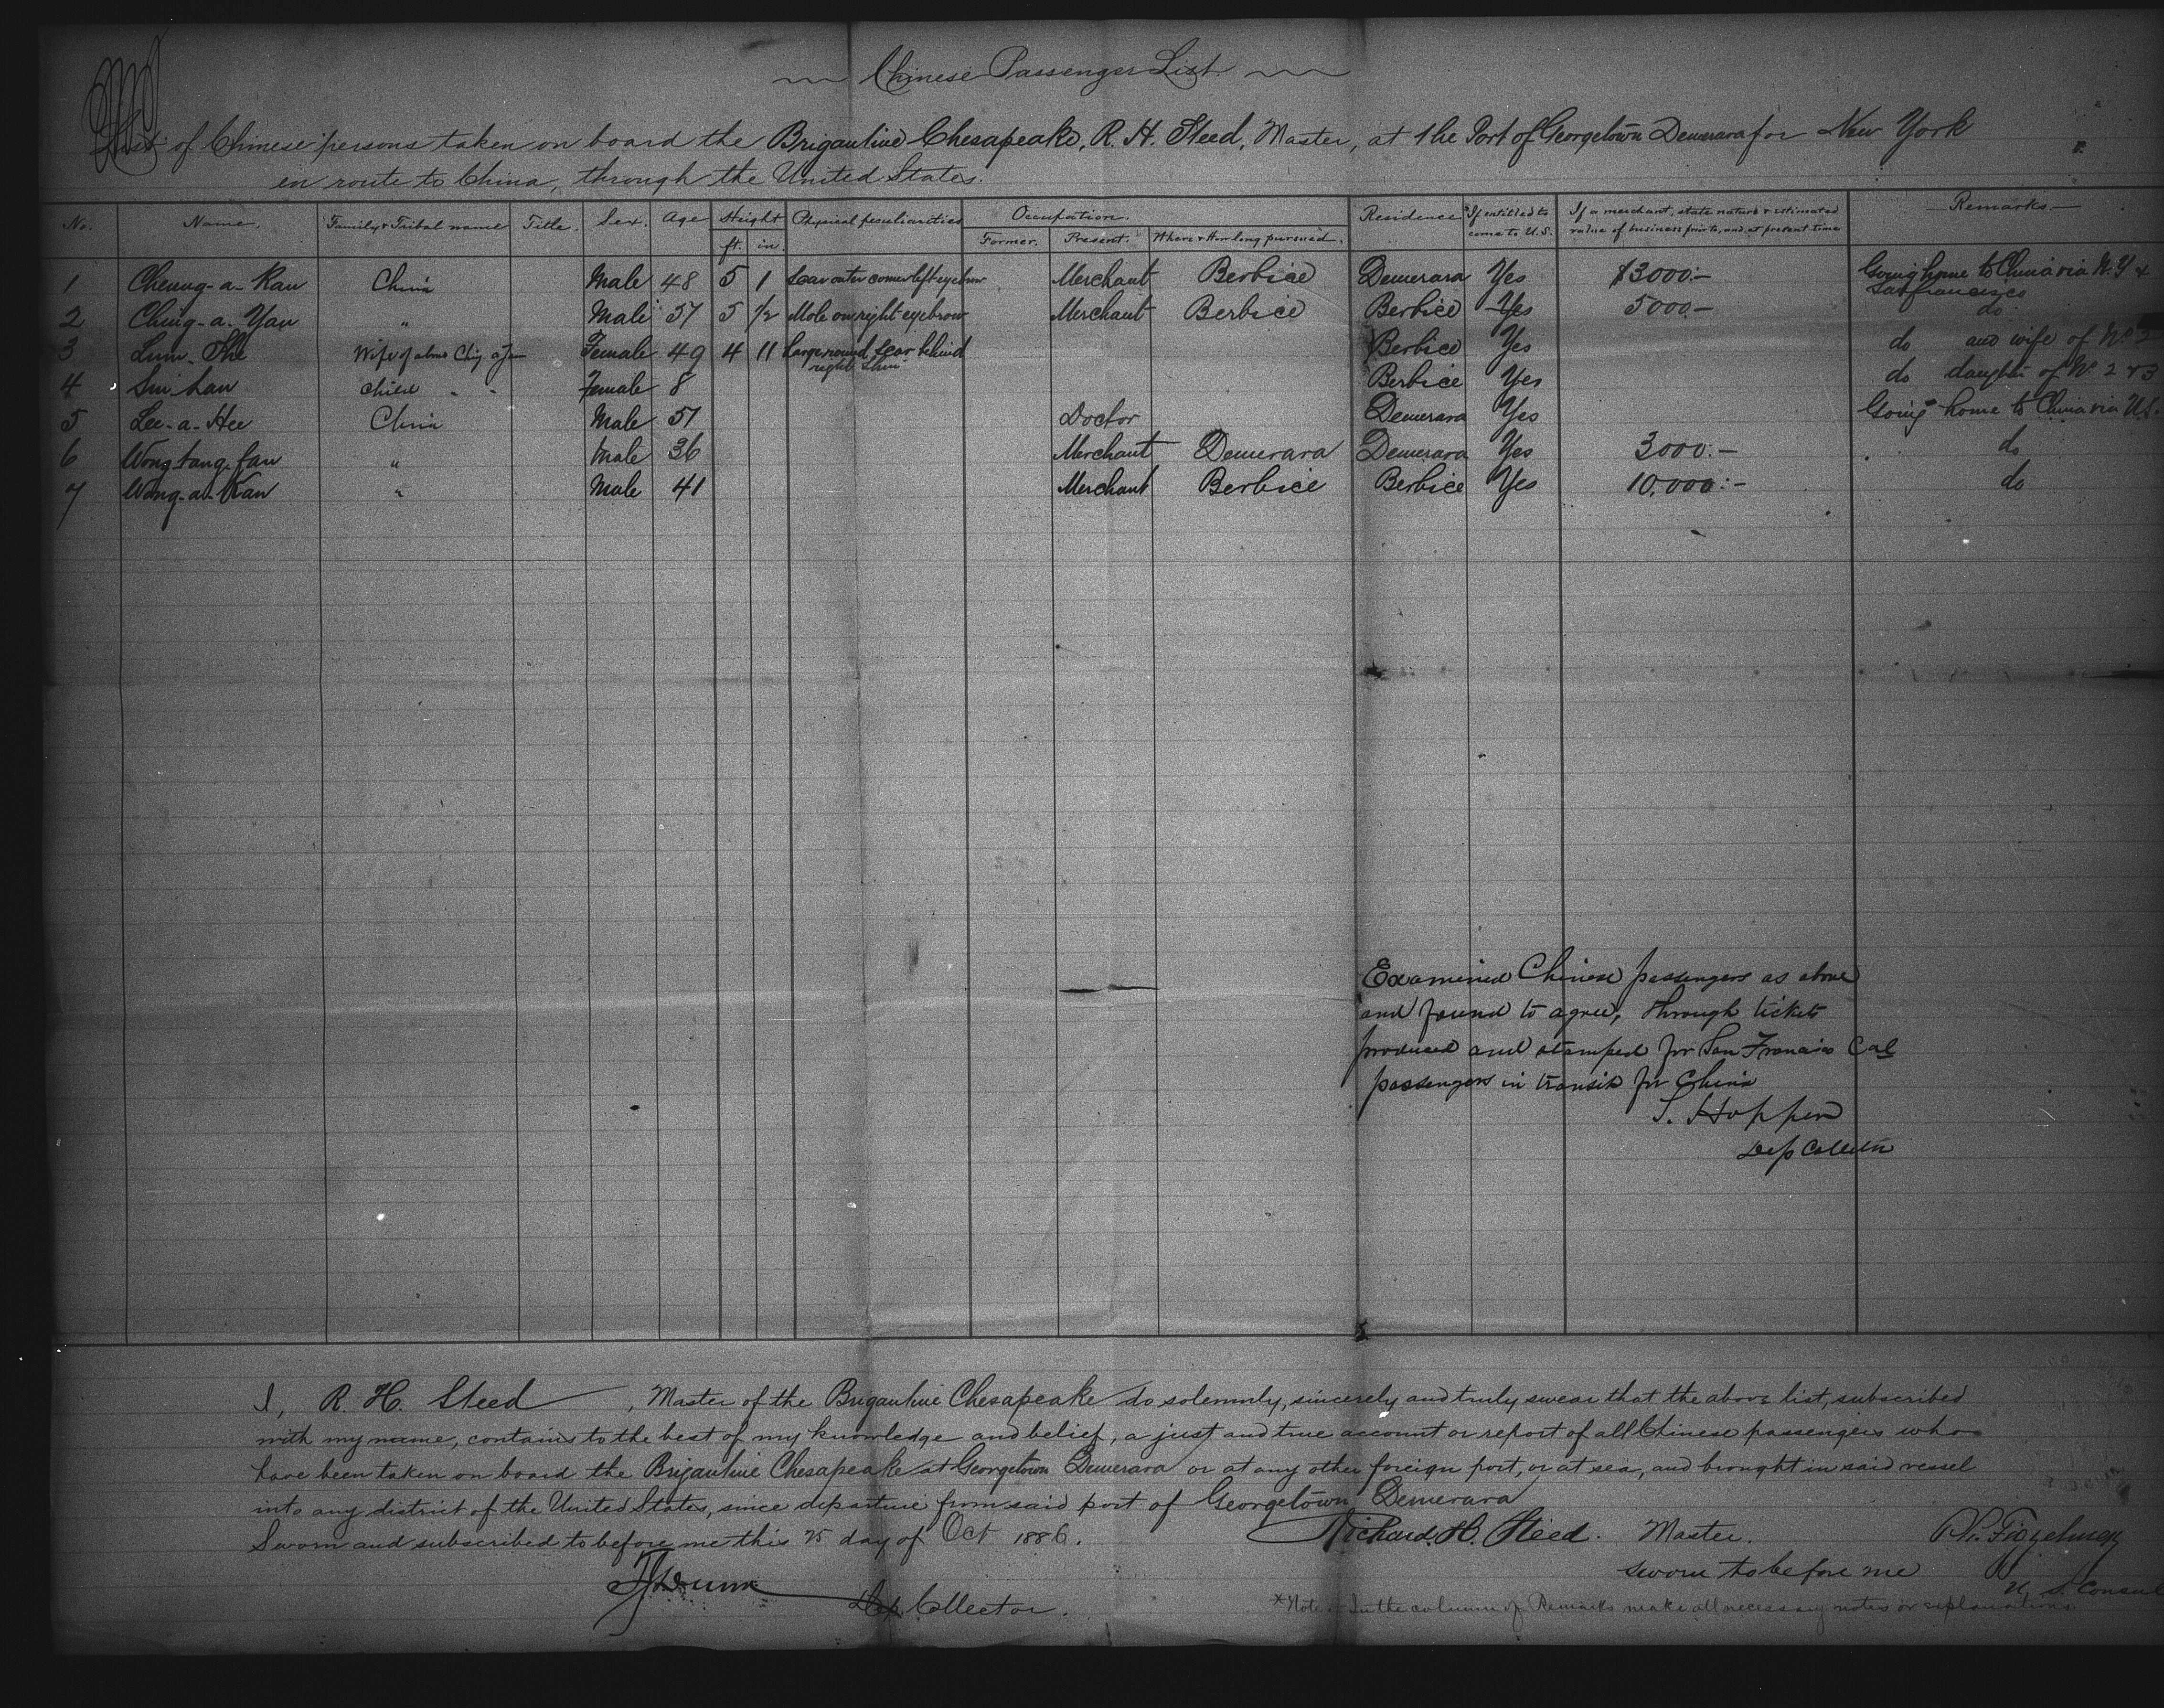 Chinese Passenger List
List of Chinese persons taken on board the Brigantine Chesapeake, R. H. Steed, Master, at the Port of Georgetown Demerara for New York
en route to China, through the United States.
No. Name. Family & Tribal name Title. Sex. Age Height ft. in. Physical peculiarities Occupation. Former. Present. Where & How long pursued. Residence If entitled to come to U.S. If a merchant, state nature & estimated value of business prior to, and at present time Remarks
1 Cheung-a-Kau China Male 48 5 1 Scar outer corner left eyebrow Merchant Berbice Demerara Yes $3000:- Going home to China via N.Y & San francisco
2 Ching-a-Yau " Male 57 5 1/2 Mole on right eyebrow Merchant Berbice Berbice Yes 5000.- do
3 Lum-She Wife of above Ching a Yau Female 49 4 11 Large round scar behind right Berbice Yes do and wife of No 2
4 Sui-Lau child " " Female 8 Berbice Yes do daughter of No 2 & 3
5 Lee-a-Hee China Male 51 Doctor Demerara Yes Going home to China via U.S.
6 Wong tang fau " Male 36 Merchant Demerara Demerara Yes 3000:- do
7 Wong-a-Kau " Male 41 Merchant Berbice Berbice Yes 10,000:- do
Examined Chinese passengers as above
and found to agree, through tickets
produced and stamped for San Francisco Cal
passengers in transit for China
S. Hoppen
Dep Collector
I, R. H. Steed, Master of the Brigantine Chesapeake do solemnly, sincerely and truly swear that the above list, subscribed
with my name, contains to the best of my knowledge and belief, a just and true account or report of all Chinese passengers who
have been taken on board the Brigantine Chesapeake at Georgetown Demerara or at any other foreign port, or at sea, and brought in said vessel
into any district of the United States, since departure from said port of Georgetown Demerara
Sworn and subscribed to before me this 25 day of Oct 1886.
Richard. H. Steed. Master.
sworn to before me
U S Consul
Dep Collector.
*Note.- In the column of Remarks make all necessary notes or explanations.